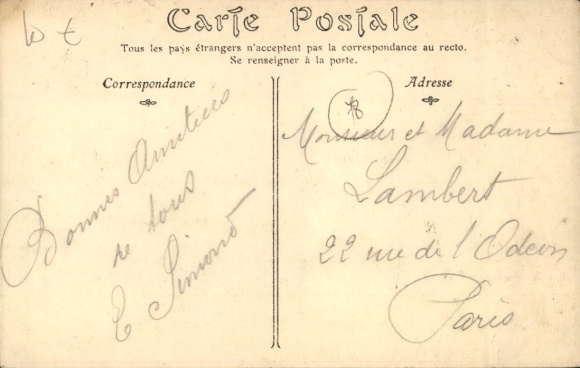 Carte Postale
Tous les pays étrangers n'acceptent pas la correspondance au recto.
Se renseigner à la poste.
Correspondance
Bonnes Amitiées
de tous
E Simond
Adresse
Monsieur et Madame
Lambert
22 rue de l'Odeon
Paris